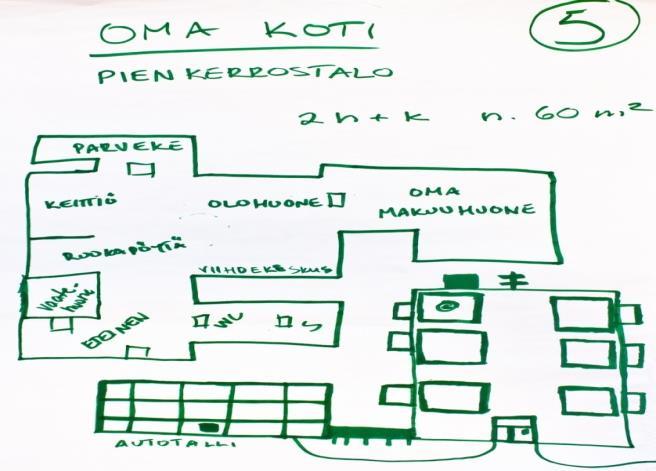 OMA KOTI
5
PIENKERROSTALO
2h+k n. 60 m²
PARVEKE
KEITTIÖ
OLOHUONE
OMA
MAKUUHUONE
RUOKAPÖYTÄ
VIIHDEKESKUS
Vaate-
huone
ETEINEN
WC
S
AUTOTALLI